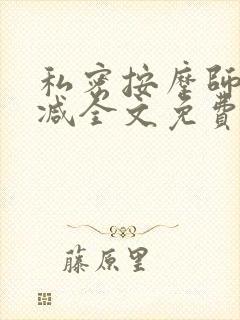 私密按摩師
减全文免費
藤原里